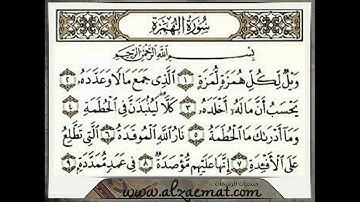 سُورَةُ الْهُمَزَةِ
بِسْمِ اللَّهِ الرَّحْمَٰنِ الرَّحِيمِ
وَيْلٌ لِّكُلِّ هُمَزَةٍ لُّمَزَةٍ ١ الَّذِي جَمَعَ مَالًا وَعَدَّدَهُ ٢
يَحْسَبُ أَنَّ مَالَهُ أَخْلَدَهُ ٣ كَلَّا لَيُنبَذَنَّ فِي الْحُطَمَةِ ٤
وَمَا أَدْرَاكَ مَا الْحُطَمَةُ ٥ نَارُ اللَّهِ الْمُوقَدَةُ ٦ الَّتِي تَطَّلِعُ
عَلَى الْأَفْئِدَةِ ٧ إِنَّهَا عَلَيْهِم مُّؤْصَدَةٌ ٨ فِي عَمَدٍ مُّمَدَّدَةٍ ٩
www.alzaemat.com